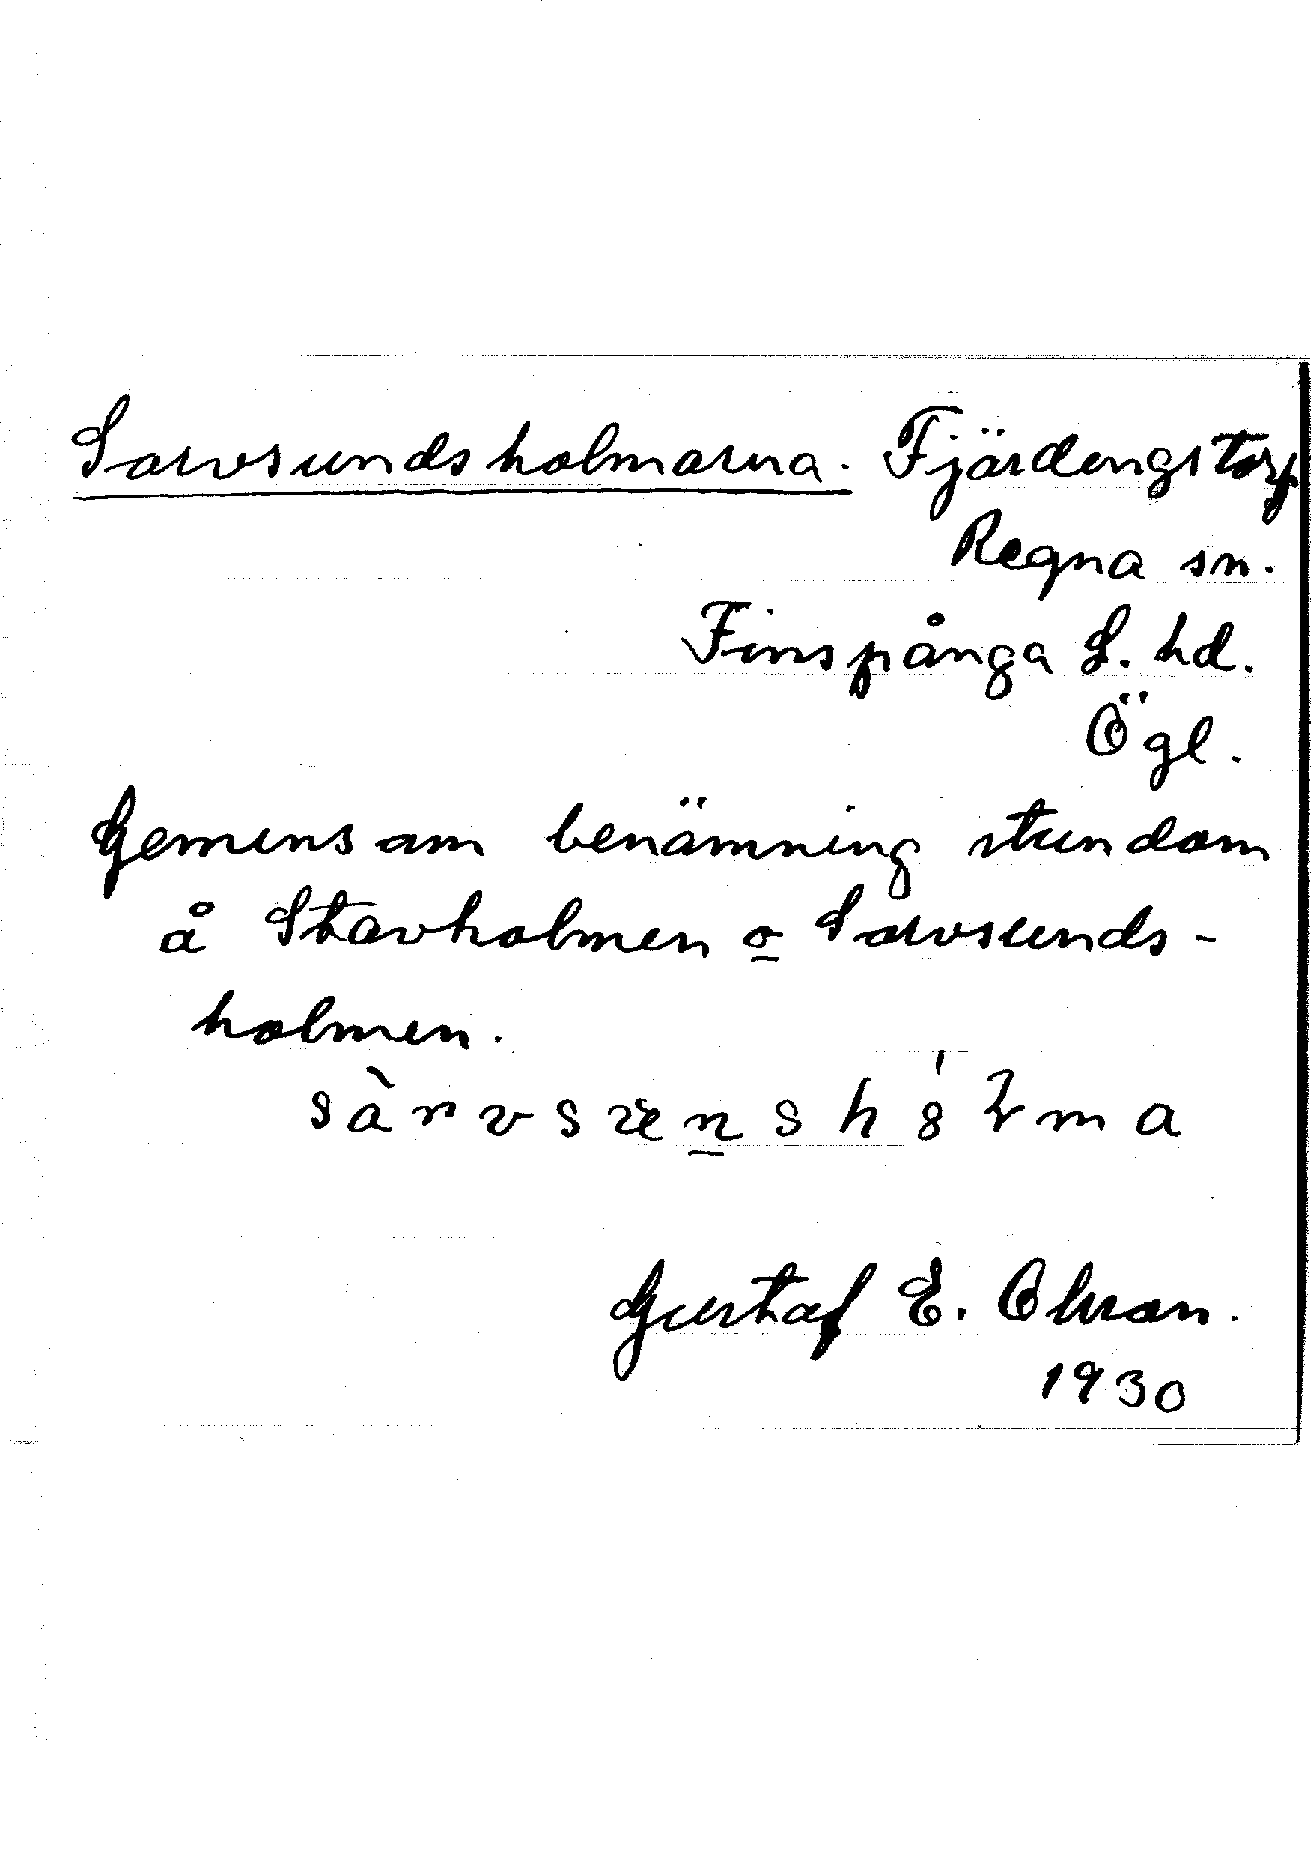 Sarvsundsholmarna. Fjärdengstorp
Regna sn.
Finspånga L. hd.
Ögl.
Gemensam benämning stundom
å Stavholmen o Sarvsunds-
holmen.
Gustaf E. Olsson.
1930